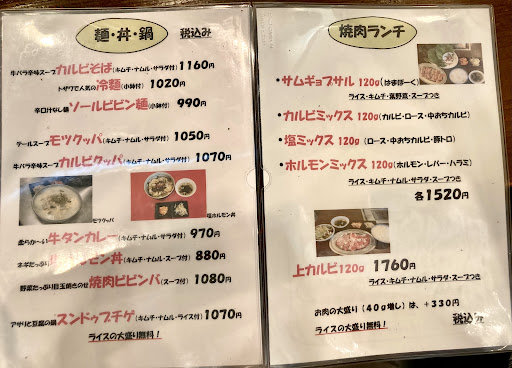 麺・丼・鍋 税込み
牛バラ辛味スープ カルビそば(キムチ・ナムル・サラダ付) 1160円
トザワで人気の 冷麺(小鉢付) 1020円
辛口汁なし麺 ソールビビン麺(小鉢付) 990円
テールスープ モツクッパ(キムチ・ナムル・サラダ付) 1050円
牛バラ辛味スープ カルビクッパ(キムチ・ナムル・サラダ付) 1070円
モツクッパ
塩ホルモン丼
柔らか〜い 牛タンカレー(キムチ・ナムル・サラダ付) 970円
ネギたっぷり 塩ホルモン丼(キムチ・ナムル・スープ付) 880円
野菜たっぷり目玉焼きのせ 焼肉ビビンバ(スープ付) 1080円
アサリと豆腐の鍋 スンドゥブチゲ(キムチ・ナムル・ライス付) 1070円
ライスの大盛り無料！
焼肉ランチ
・サムギョプサル 120g(はまぽーく)
ライス・キムチ・葉野菜・スープつき
・カルビミックス 120g(カルビ・ロース・中おちカルビ)
・塩ミックス 120g(ロース・中おちカルビ・豚トロ)
・ホルモンミックス 120g(ホルモン・レバー・ハラミ)
ライス・キムチ・ナムル・サラダ・スープつき
各1520円
上カルビ120g 1760円
ライス・キムチ・ナムル・サラダ・スープつき
お肉の大盛り（40g増し）は、+330円
ライスの大盛り無料！ 税込み